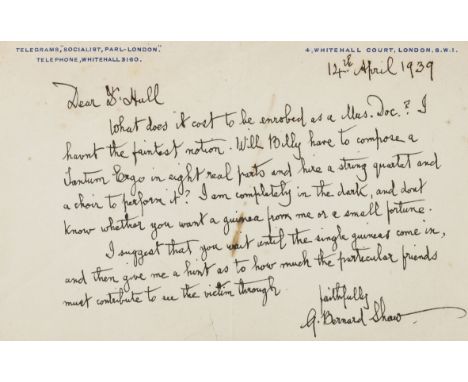 TELEGRAMS, "SOCIALIST, PARL-LONDON."
TELEPHONE, WHITEHALL 3160.
4, WHITEHALL COURT, LONDON, S.W.1.
14th April 1939
Dear Dr Hull
What does it cost to be enrobed as a Mus. Doc.? I
havnt the faintest notion. Will Billy have to compose a
Tantum Ergo in eight real parts and hire a string quartet and
a choir to perform it? I am completely in the dark, and dont
know whether you want a guinea from me or a small fortune.
I suggest that you wait until the single guineas come in,
and then give me a hint as to how much the particular friends
must contribute to see the victim through
faithfully
G. Bernard Shaw